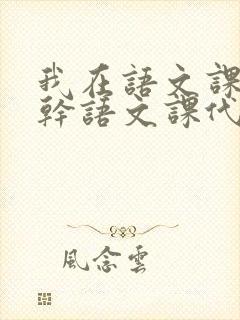 我在語文課
幹語文課代
風念雲